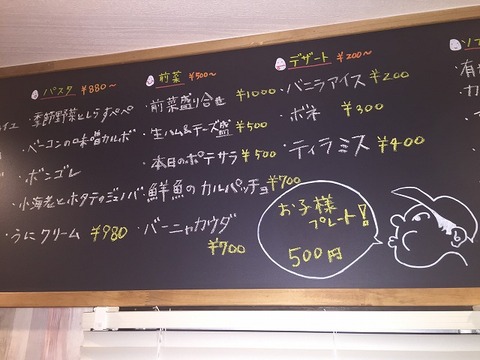 パスタ ¥880〜
・季節野菜としらすペペ
・ベーコンの味噌カルボ
・ボンゴレ
・小海老とホタテのジェノバ
・うにクリーム ¥980
前菜 ¥500〜
・前菜盛り合せ ¥1000
・生ハム&チーズ盛 ¥500
・本日のポテサラ ¥500
・鮮魚のカルパッチョ ¥700
・バーニャカウダ
¥700
デザート ¥200〜
・バニラアイス ¥200
・ボネ ¥300
・ティラミス ¥400
お子様
プレート!
500円
ソフ
・有
・カ